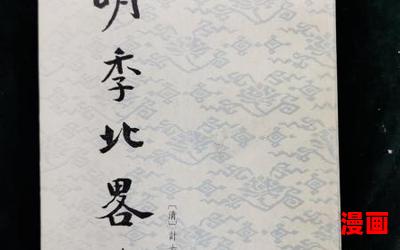 明季北畧
[清]計
漫画